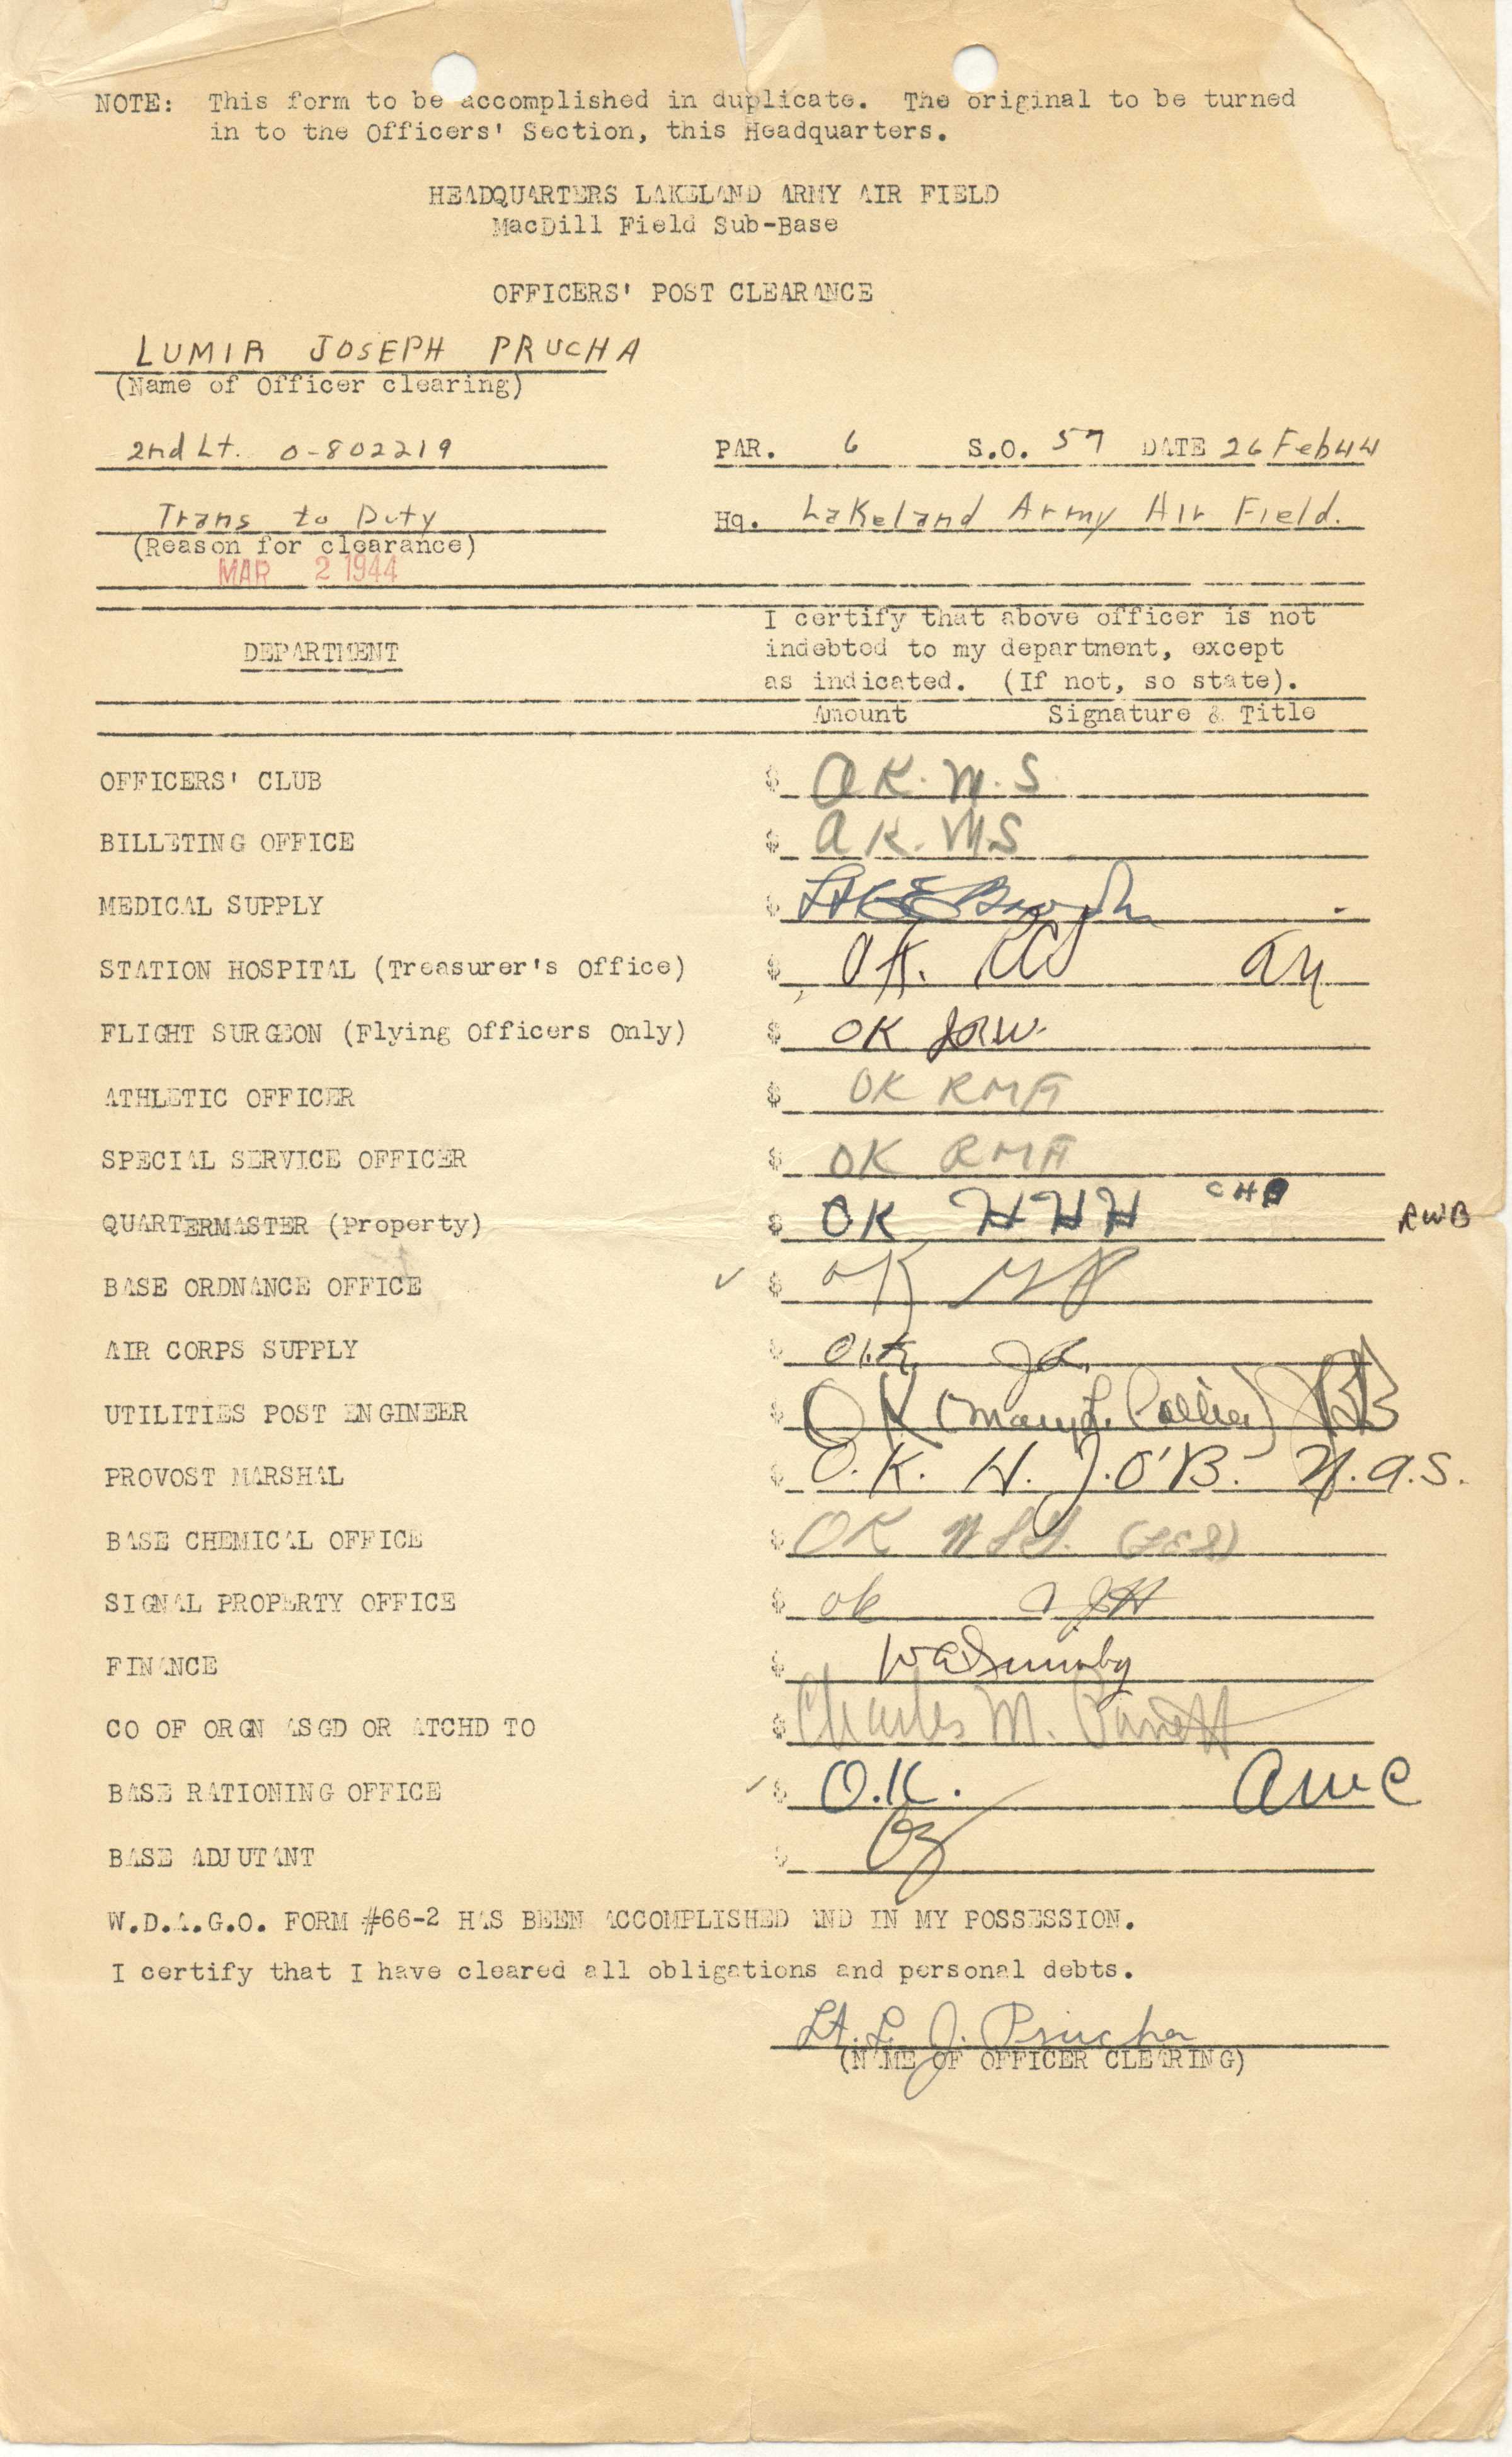 NOTE: This form to be accomplished in duplicate. The original to be turned
in to the Officers' Section, this Headquarters.
HEADQUARTERS LAKELAND ARMY AIR FIELD
MacDill Field Sub-Base
OFFICERS' POST CLEARANCE
LUMIR JOSEPH PRUCHA
(Name of Officer clearing)
2nd Lt. O-802219 PAR. 6 S.O. 57 DATE 26 Feb 44
Trans to Duty Hq. Lakeland Army Air Field.
(Reason for clearance)
MAR 2 1944
I certify that above officer is not
DEPARTMENT indebted to my department, except
as indicated. (If not, so state).
Amount Signature & Title
OFFICERS' CLUB $ OK. M.S
BILLETING OFFICE $ OK. MS
MEDICAL SUPPLY $
STATION HOSPITAL (Treasurer's Office) $ OK.
FLIGHT SURGEON (Flying Officers Only) $ OK JRW.
ATHLETIC OFFICER $ OK RMA
SPECIAL SERVICE OFFICER $ OK RMA
QUARTERMASTER (Property) $ OK HHH RWB
BASE ORDNANCE OFFICE ✓ $ OK
AIR CORPS SUPPLY $ O.K.
UTILITIES POST ENGINEER $ OK (Mary L. Collier)
PROVOST MARSHAL $ O.K. H. J. O'B. N.A.S.
BASE CHEMICAL OFFICE $ OK
SIGNAL PROPERTY OFFICE $ ok
FINANCE $
CO OF ORGN ASGD OR ATCHD TO $ Charles M.
BASE RATIONING OFFICE ✓ $ O.K. AMC
BASE ADJUTANT $
W.D.A.G.O. FORM #66-2 HAS BEEN ACCOMPLISHED AND IN MY POSSESSION.
I certify that I have cleared all obligations and personal debts.
Lt. L. J. Prucha
(NAME OF OFFICER CLEARING)